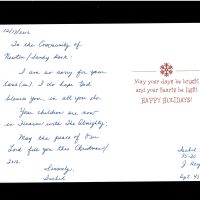 12/19/2012
To the Community of
Newton/Sandy Hook:
I am so sorry for your
loss(es). I do hope God
blesses you in all you do.
Your children are now
in Heaven with The Almighty;
May the peace of Our
Lord fill you this Christmas/
2012.
Sincerely,
Isabel
May your days be bright
and your hearts be light!
HAPPY HOLIDAYS!
Isabel
35-20
J
Apt. 43